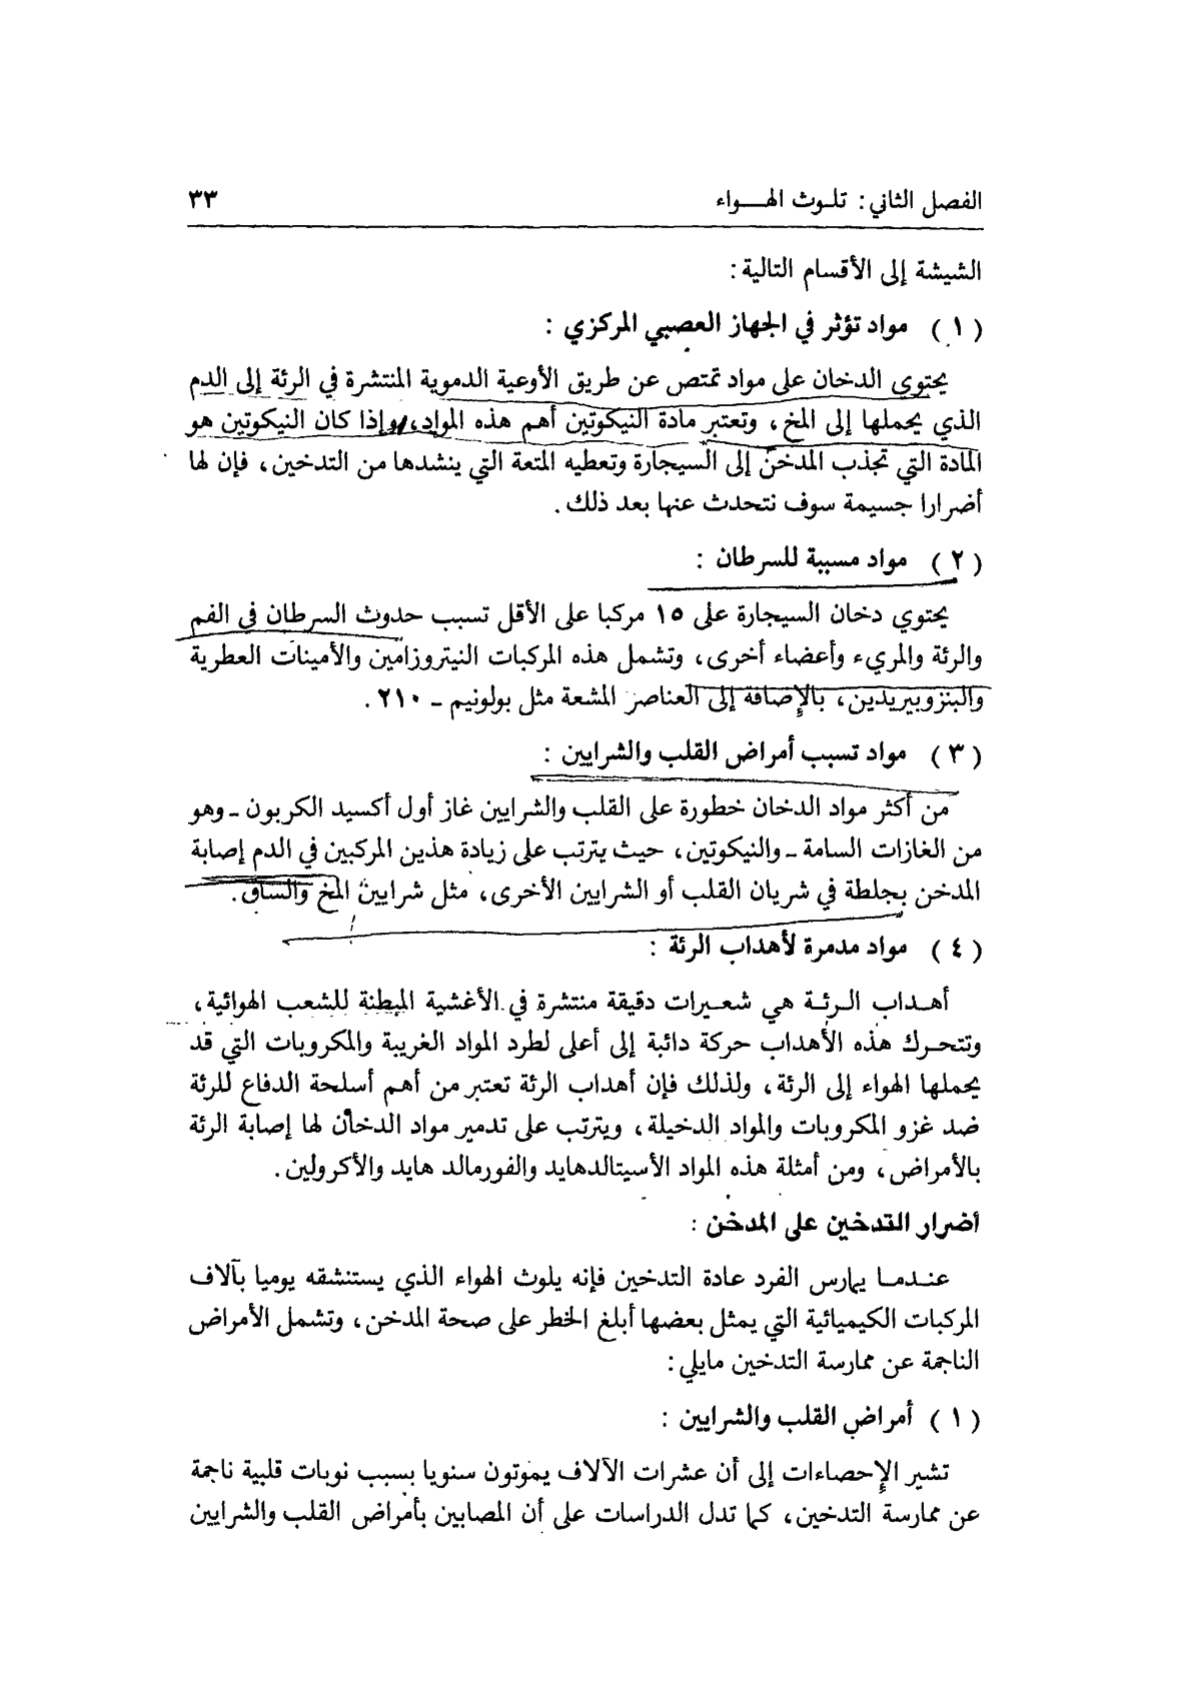 الفصل الثاني: تلوث الهواء ٣٣
الشيشة إلى الأقسام التالية:
(١) مواد تؤثر في الجهاز العصبي المركزي :
يحتوي الدخان على مواد تمتص عن طريق الأوعية الدموية المنتشرة في الرئة إلى الدم
الذي يحملها إلى المخ، وتعتبر مادة النيكوتين أهم هذه المواد، وإذا كان النيكوتين هو
المادة التي تجذب المدخن إلى السيجارة وتعطيه المتعة التي ينشدها من التدخين، فإن لها
أضرارا جسيمة سوف نتحدث عنها بعد ذلك.
(٢) مواد مسببة للسرطان :
يحتوي دخان السيجارة على ١٥ مركبا على الأقل تسبب حدوث السرطان في الفم
والرئة والمريء وأعضاء أخرى، وتشمل هذه المركبات النيتروزامين والأمينات العطرية
والبنزوبيريدين، بالإضافة إلى العناصر المشعة مثل بولونيم ـ ٢١٠.
(٣) مواد تسبب أمراض القلب والشرايين :
من أكثر مواد الدخان خطورة على القلب والشرايين غاز أول أكسيد الكربون ـ وهو
من الغازات السامة ـ والنيكوتين، حيث يترتب على زيادة هذين المركبين في الدم إصابة
المدخن بجلطة في شريان القلب أو الشرايين الأخرى، مثل شرايين المخ والساق.
(٤) مواد مدمرة لأهداب الرئة :
أهداب الرئة هي شعيرات دقيقة منتشرة في الأغشية المبطنة للشعب الهوائية،
وتتحرك هذه الأهداب حركة دائبة إلى أعلى لطرد المواد الغريبة والمكروبات التي قد
يحملها الهواء إلى الرئة، ولذلك فإن أهداب الرئة تعتبر من أهم أسلحة الدفاع للرئة
ضد غزو المكروبات والمواد الدخيلة، ويترتب على تدمير مواد الدخان لها إصابة الرئة
بالأمراض، ومن أمثلة هذه المواد الأسيتالدهايد والفورمالد هايد والأكرولين.
أضرار التدخين على المدخن :
عندما يمارس الفرد عادة التدخين فإنه يلوث الهواء الذي يستنشقه يوميا بآلاف
المركبات الكيميائية التي يمثل بعضها أبلغ الخطر على صحة المدخن، وتشمل الأمراض
الناجمة عن ممارسة التدخين مايلي:
(١) أمراض القلب والشرايين :
تشير الإحصاءات إلى أن عشرات الآلاف يموتون سنويا بسبب نوبات قلبية ناجمة
عن ممارسة التدخين، كما تدل الدراسات على أن المصابين بأمراض القلب والشرايين